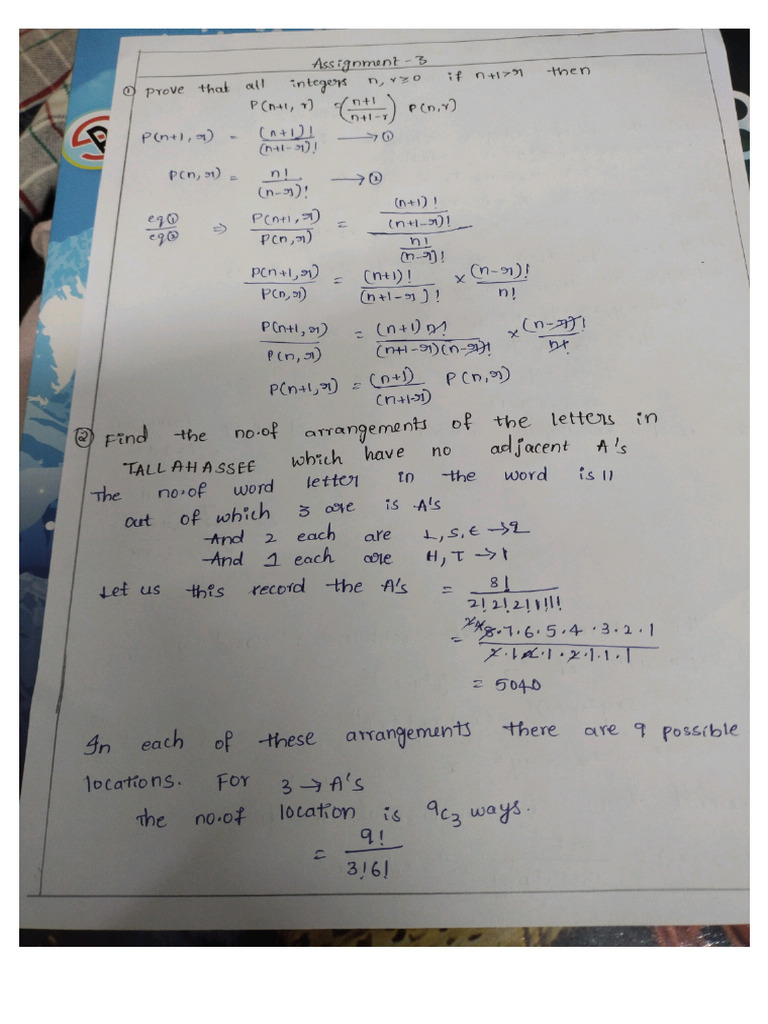 Assignment - 3
① prove that all integers n, r ≥ 0 if n+1 > r then
P(n+1, r) = (n+1 / n+1-r) P(n, r)
P(n+1, r) = (n+1)! / (n+1-r)! → ①
P(n, r) = n! / (n-r)! → ②
eq① / eq② ⇒ P(n+1, r) / P(n, r) = (n+1)! / (n+1-r)! / n! / (n-r)!
P(n+1, r) / P(n, r) = (n+1)! / (n+1-r)! × (n-r)! / n!
P(n+1, r) / P(n, r) = (n+1) n! / (n+1-r)(n-r)! × (n-r)! / n!
P(n+1, r) = (n+1) / (n+1-r) P(n, r)
② Find the no.of arrangements of the letters in
TALLAHASSEE which have no adjacent A's
The no.of word letter in the word is 11
out of which 3 are is A's
And 2 each are L, S, E → 2
And 1 each are H, T → 1
Let us this record the A's = 8! / 2! 2! 2! 1! 1!
= 8.7.6.5.4.3.2.1 / 2.1.2.1.2.1.1.1
= 5040
In each of these arrangements there are 9 possible
locations. For 3 → A's
The no.of location is 9C3 ways.
= 9! / 3! 6!